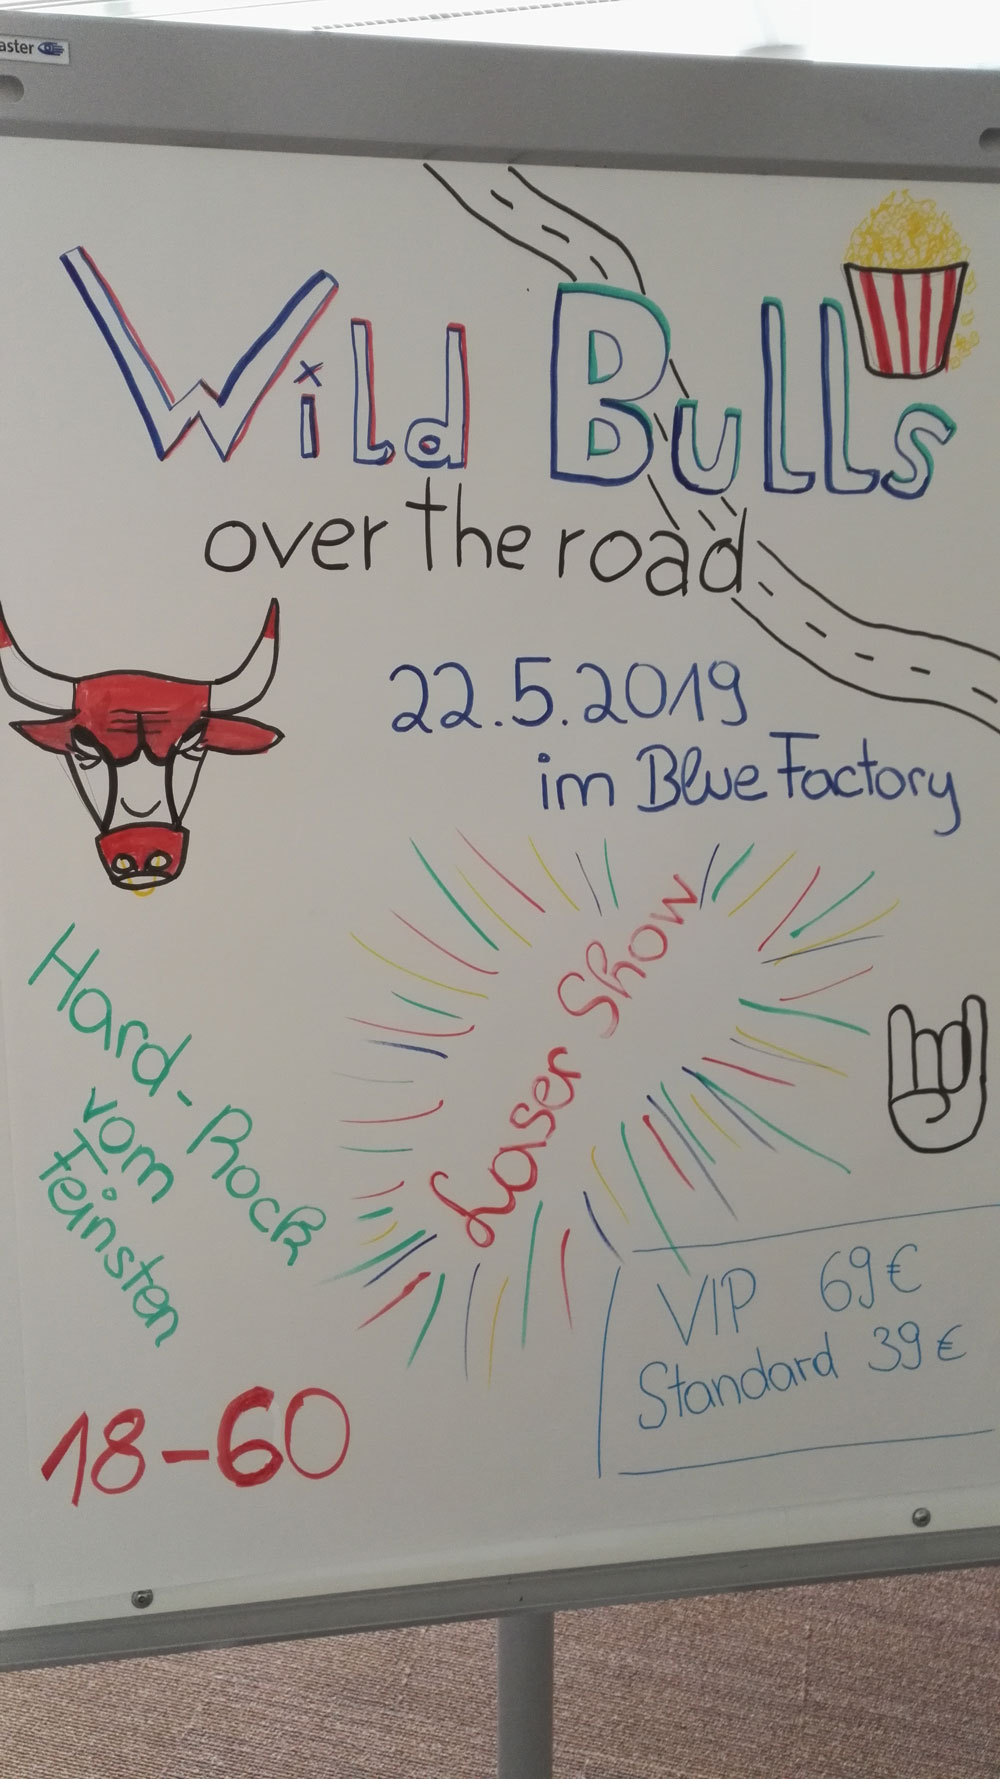 aster
Wild Bulls
over the road
22.5.2019
im Blue Factory
Laser Show
Hard-Rock
vom
Feinsten
VIP 69€
Standard 39€
18-60